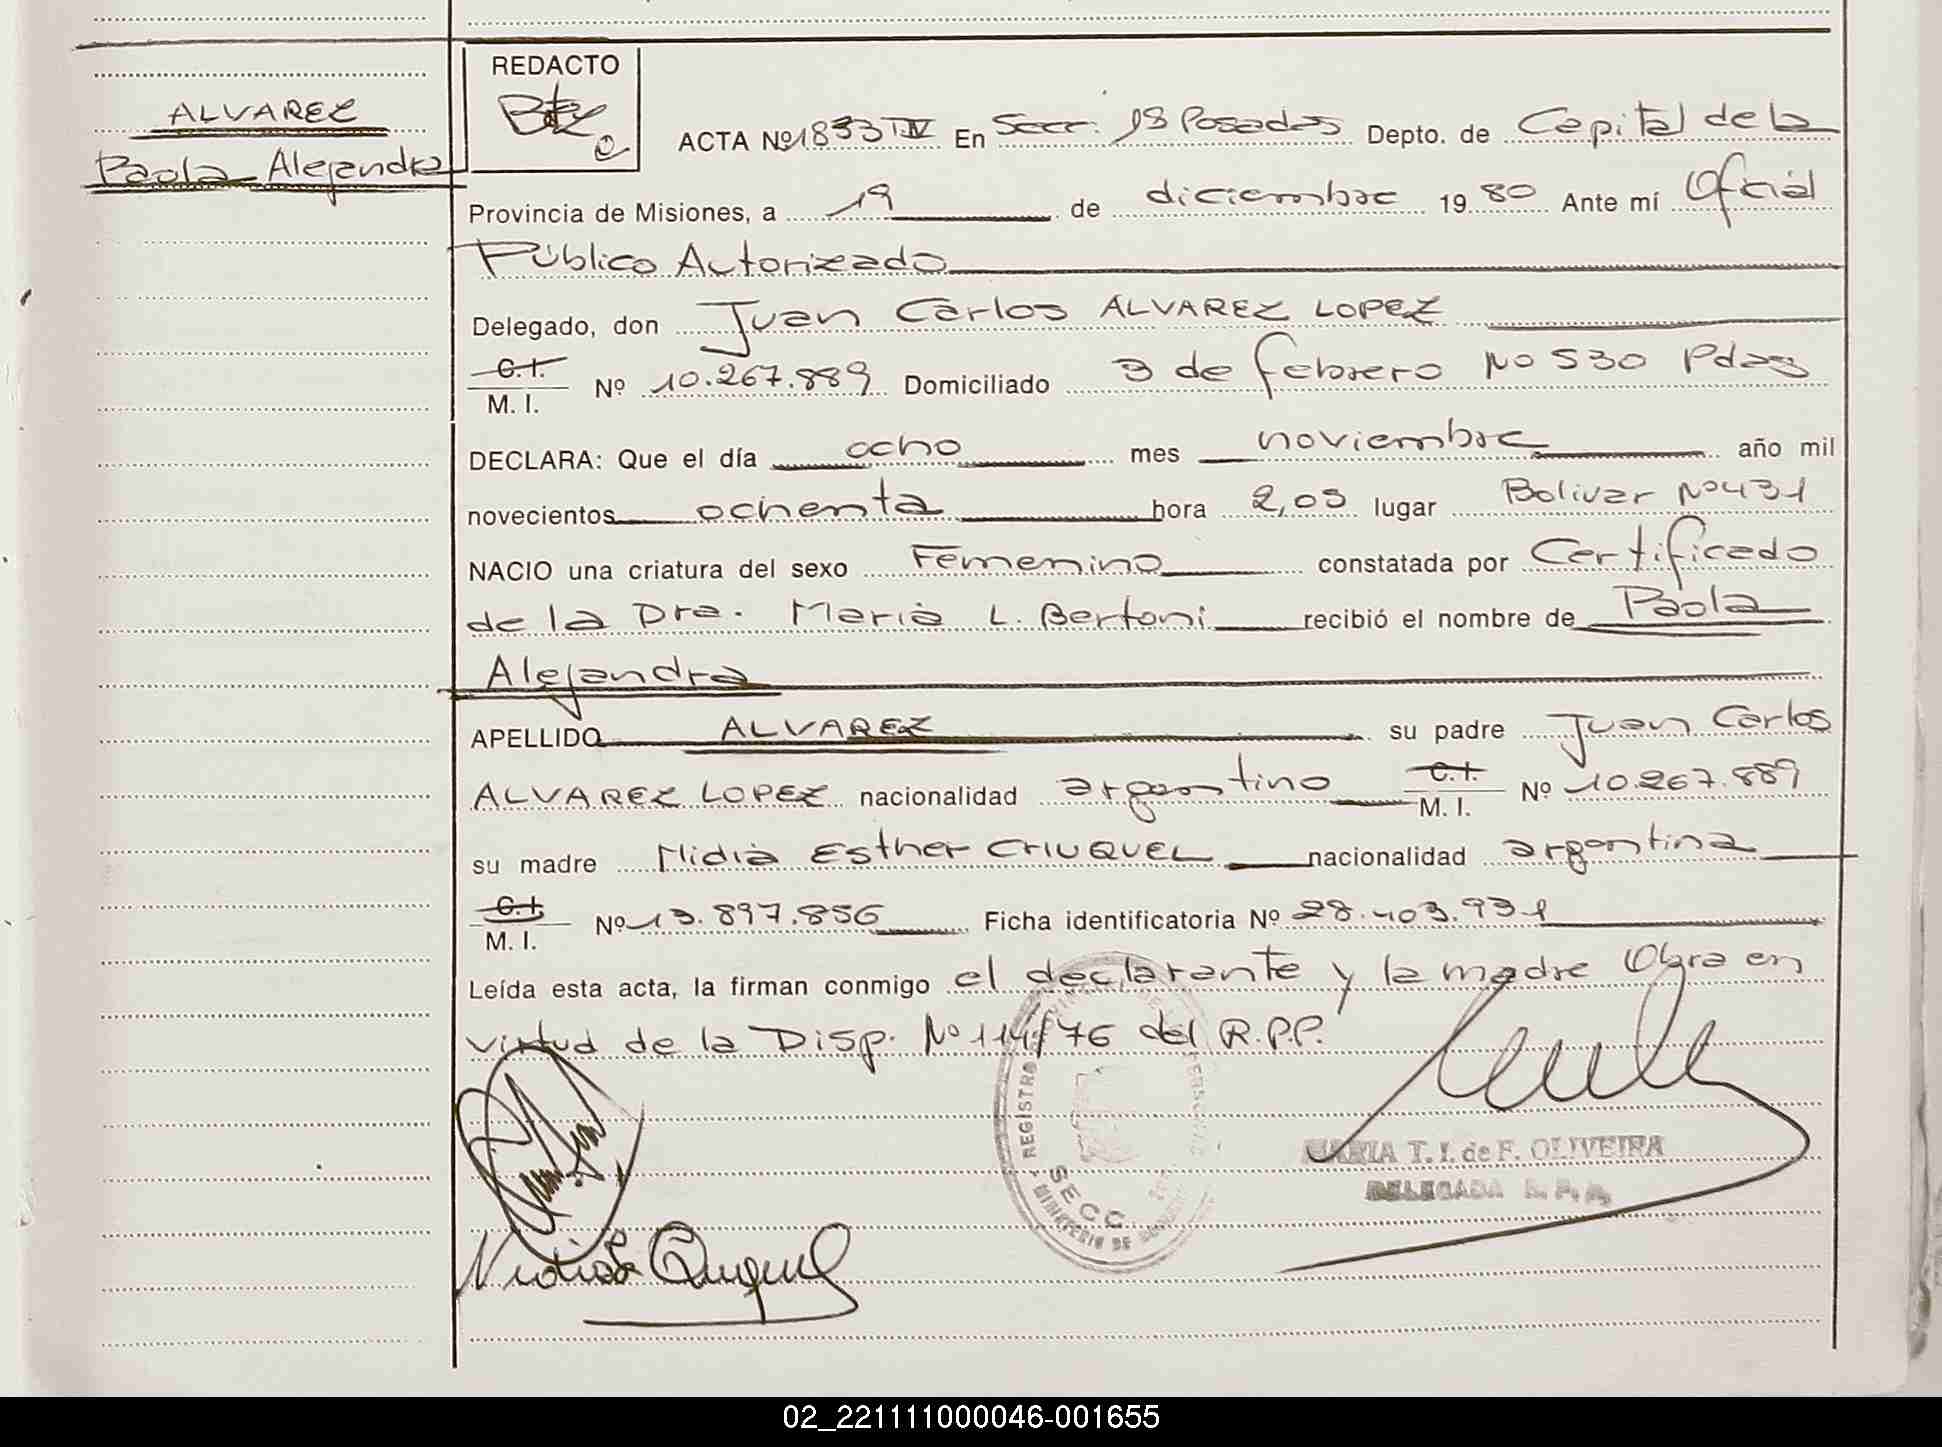 REDACTO
ALVAREZ
Paola Alejandra
ACTA Nº 1833 TIV En Secc. 1ª Posadas Depto. de Capital de la
Provincia de Misiones, a 19 de diciembre 19 80 Ante mí Oficial
Público Autorizado
Delegado, don Juan Carlos ALVAREZ LOPEZ
C.I.
M. I. Nº 10.267.889 Domiciliado 3 de febrero Nº 530 Pdas
DECLARA: Que el día ocho mes noviembre año mil
novecientos ochenta hora 2,05 lugar Bolivar Nº 431
NACIO una criatura del sexo Femenino constatada por Certificado
de la Dra. María L. Bertoni recibió el nombre de Paola
Alejandra
APELLIDO ALVAREZ su padre Juan Carlos
ALVAREZ LOPEZ nacionalidad argentino C.I. M. I. Nº 10.267.889
su madre Nidia Esther CHUQUEL nacionalidad argentina
C.I.
M. I. Nº 13.897.856 Ficha identificatoria Nº 28.403.931
Leída esta acta, la firman conmigo el declarante y la madre Obra en
virtud de la Disp. Nº 114/76 del R.P.P.
REGISTRO
SECC
MINISTERIO DE
MARIA T. I. de F. OLIVEIRA
DELEGADA R. P. P.
02_221111000046-001655